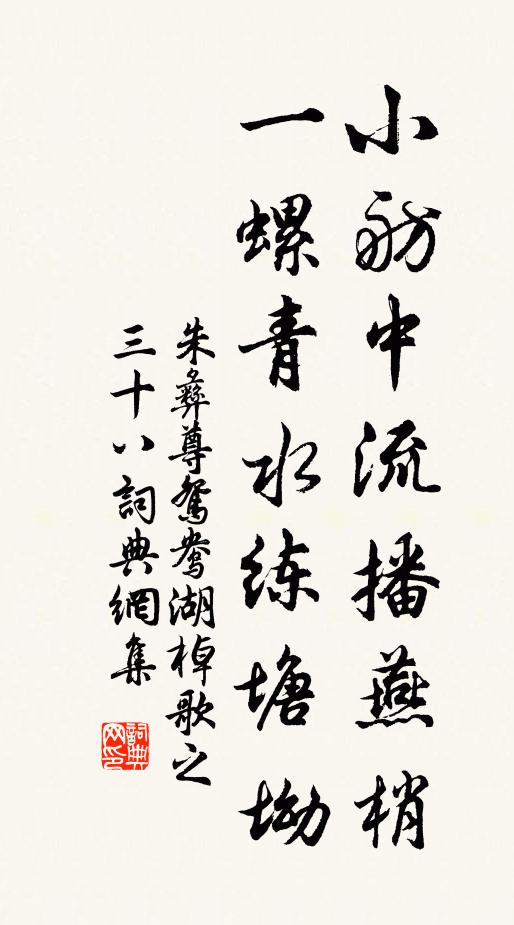 小舫中流播燕梢
一螺青水练塘坳
朱彝尊鸳鸯湖棹歌之
三十八詞典網集
詞典
网印